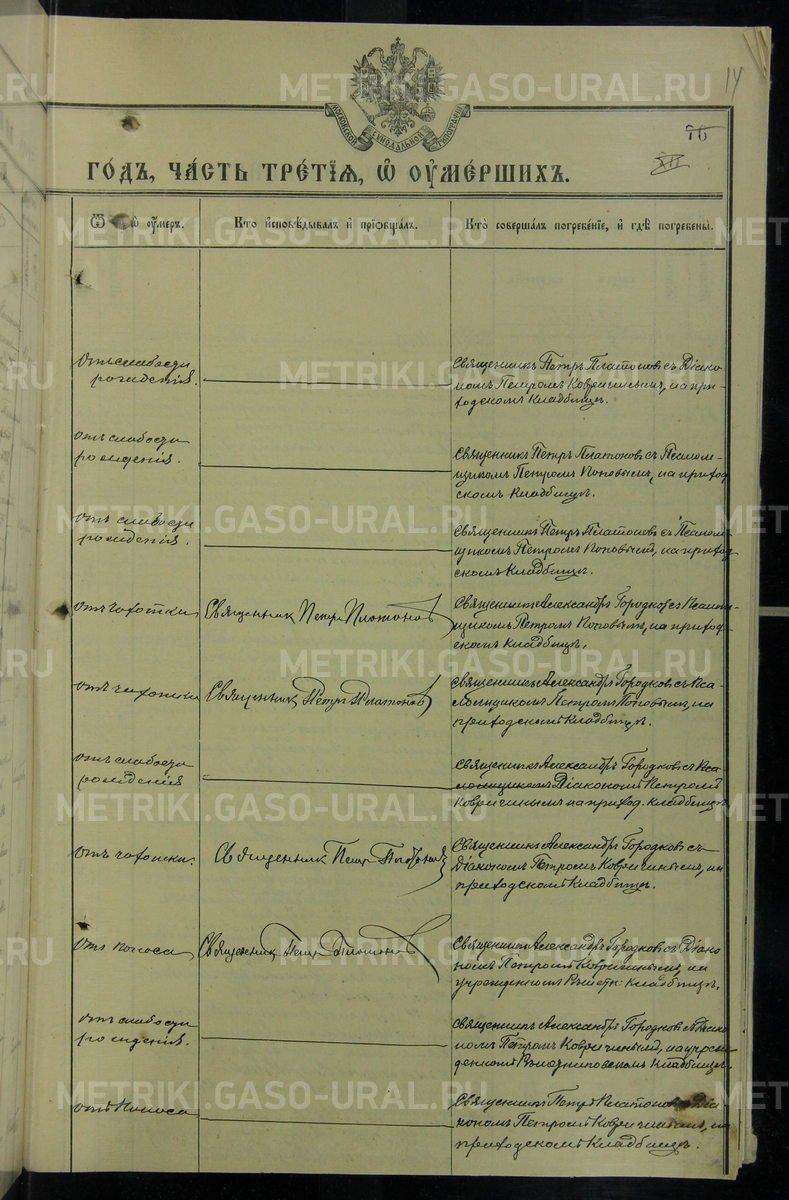 METRIKI.GASO-URAL.RU
14
МОСКОВСКОЙ СѴНОДАЛЬНОЙ ТИПОГРАФІИ
76
XII
ГОДЪ, ЧАСТЬ ТРЕТІЯ, Ѡ ОУМЕРШИХЪ.
Ѿ ОУМЕР.
Кто исповѣдывалъ и пріобщалъ.
Кто совершалъ погребеніе, и гдѣ погребены.
отъ слабости
рожденія.
Священникъ Петръ Платоновъ съ Діако-
номъ Петромъ Ковригинымъ, на при-
ходскомъ кладбищѣ.
отъ слабости
рожденія.
Священникъ Петръ Платоновъ съ Псалом-
щикомъ Петромъ Поповымъ, на приход
скомъ кладбищѣ.
отъ слабости
рожденія.
Священникъ Петръ Платоновъ съ Псалом-
щикомъ Петромъ Поповымъ, на приход-
скомъ кладбищѣ.
отъ чахотки
Священник Петр Платонов
Священникъ Александръ Городковъ съ Псалом-
щикомъ Петромъ Поповымъ, на приход-
скомъ кладбищѣ.
отъ чахотки
Священник Петр Платонов
Священникъ Александръ Городковъ съ Пса-
ломщикомъ Петромъ Поповымъ, на
приходскомъ кладбищѣ.
отъ слабости
рожденія
Священникъ Александръ Городковъ съ Пса-
ломщикомъ Діакономъ Петромъ
Ковригинымъ на приход. кладбищѣ
отъ чахотки.
Священник Петр Платонов
Священникъ Александръ Городковъ съ
Діакономъ Петромъ Ковригинымъ, на
приходскомъ кладбищѣ.
отъ поноса
Священник Петр Платонов
Священникъ Александръ Городковъ съ Діако
номъ Петромъ Ковригинымъ, на
учрежденномъ кладбищѣ.
отъ слабости
рожденія.
Священникъ Александръ Городковъ съ Діако
номъ Петромъ Ковригинымъ, на учреж
денномъ кладбищѣ
отъ поноса
Священникъ Петръ Платоновъ съ Діа-
кономъ Петромъ Ковригинымъ, на
приходскомъ кладбищѣ.